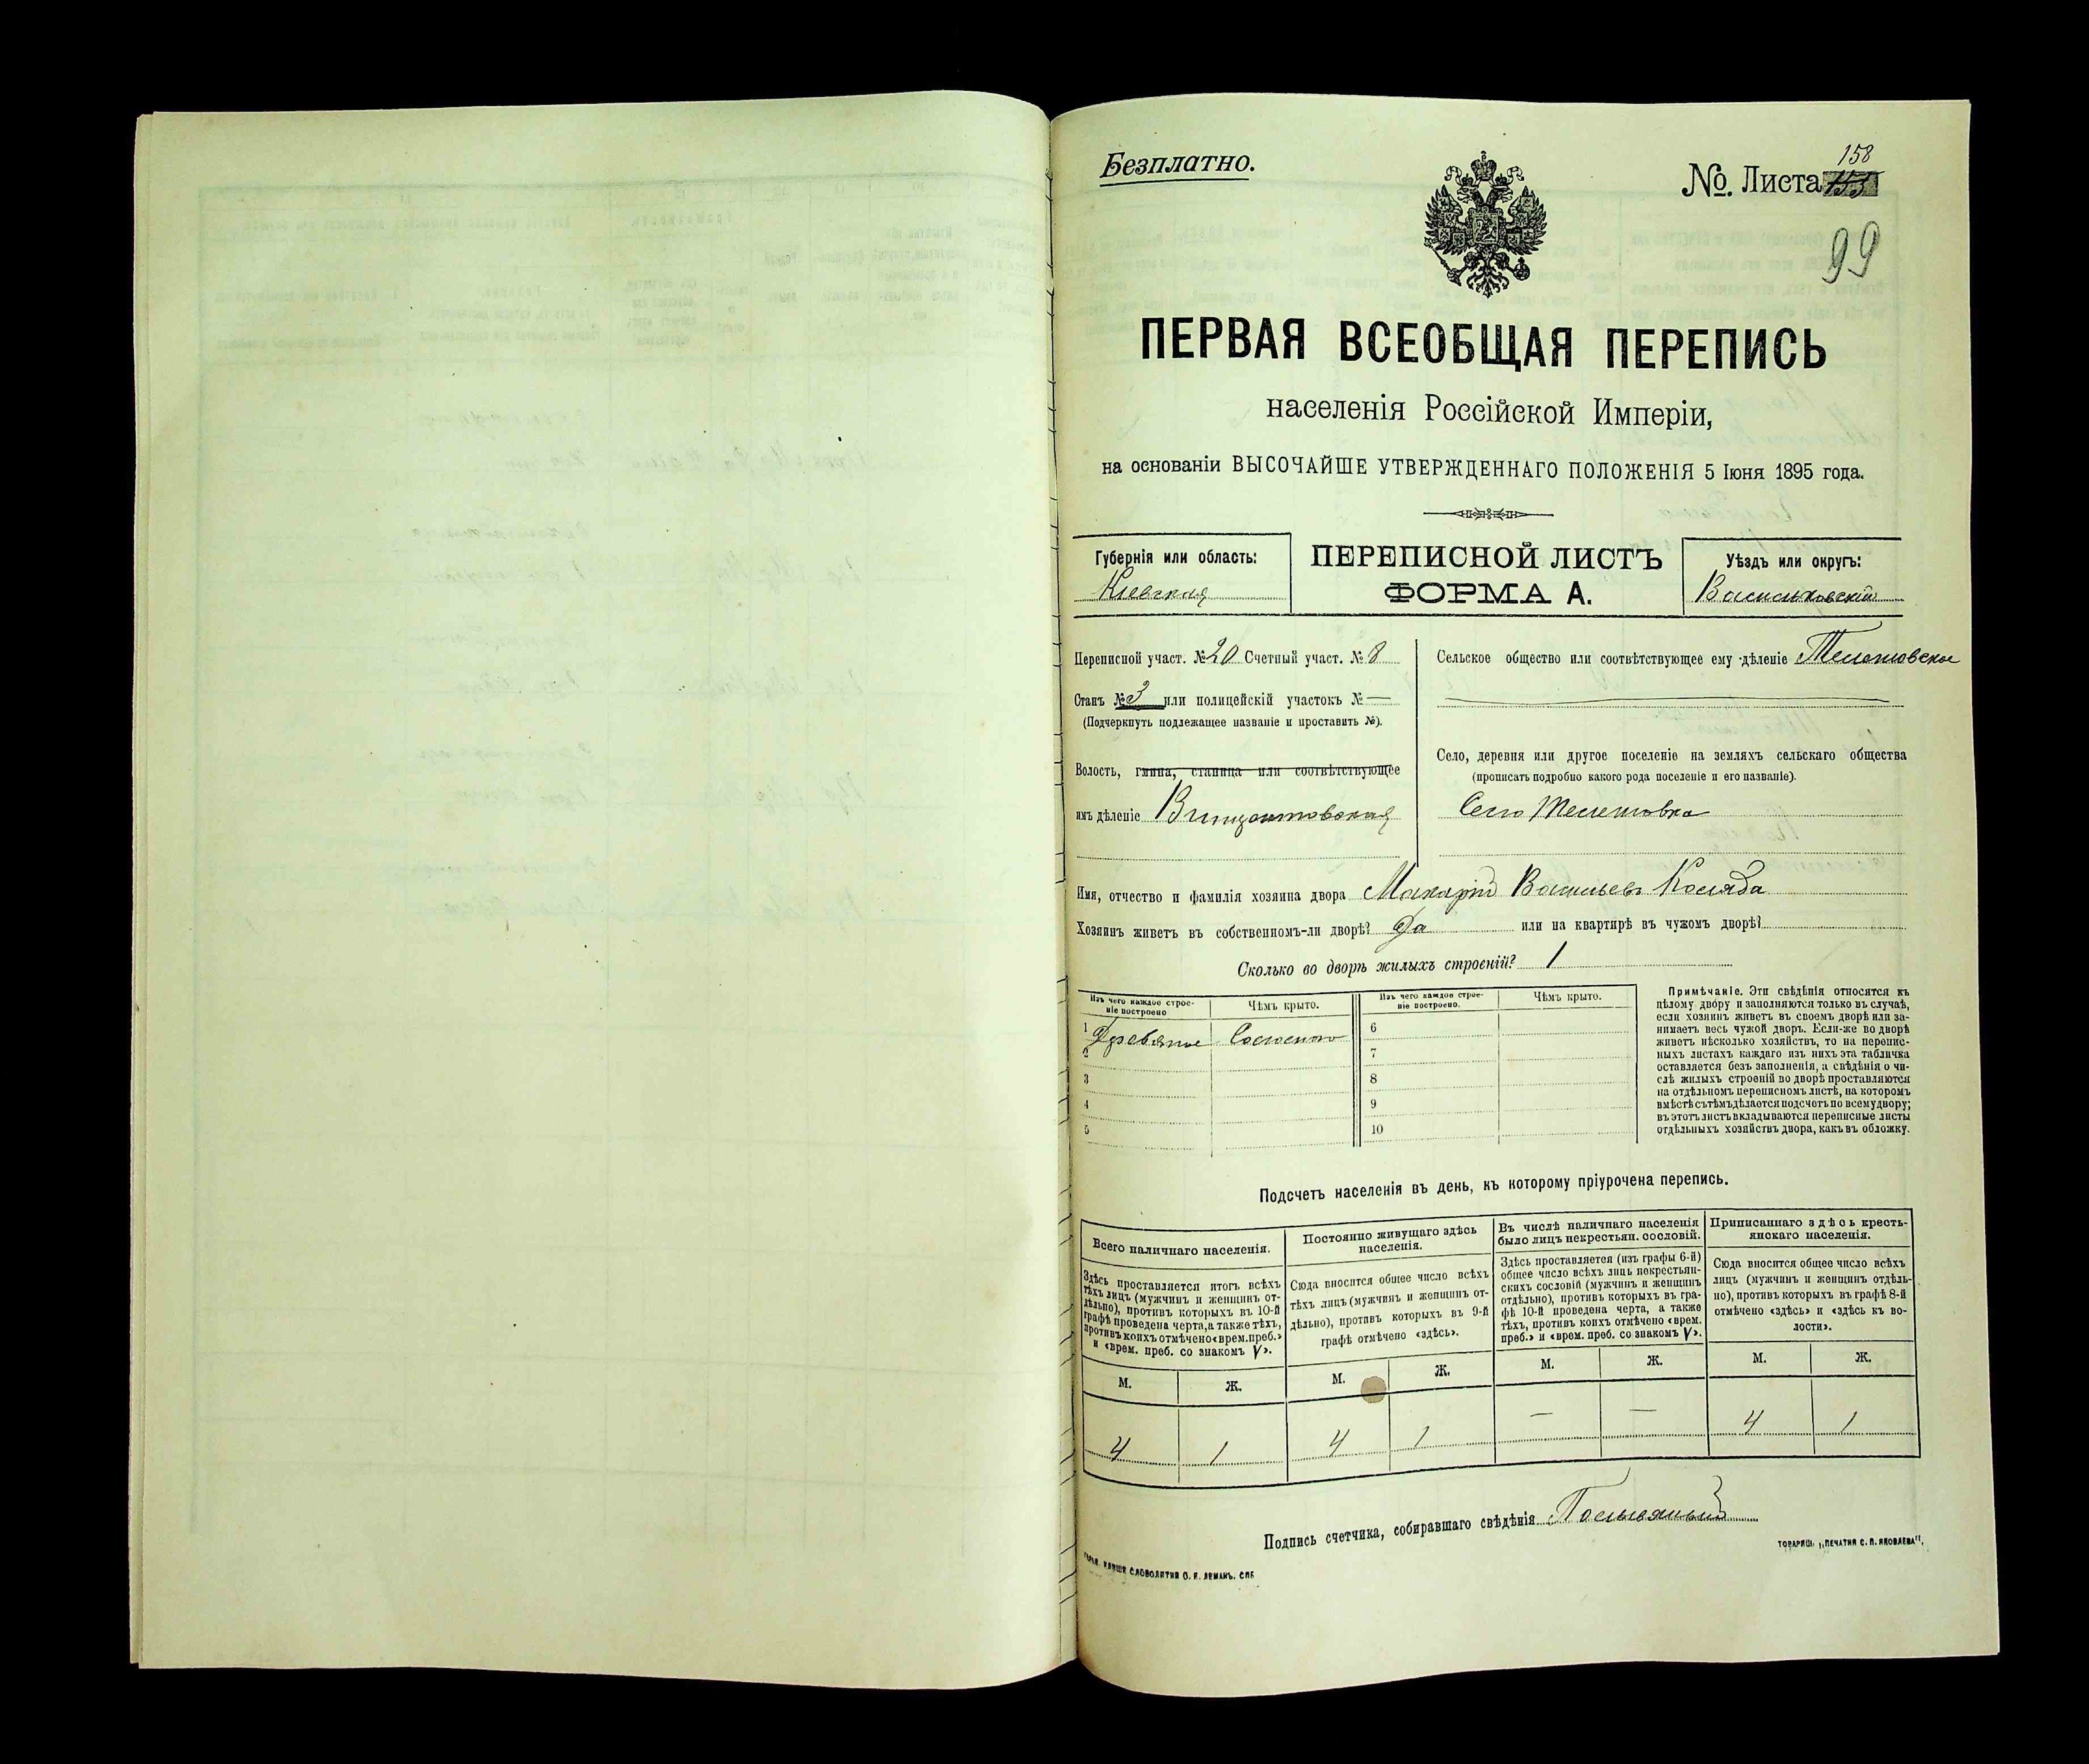 Безплатно.
158
№. Листа 153
99
ПЕРВАЯ ВСЕОБЩАЯ ПЕРЕПИСЬ
населенія Россійской Имперіи,
на основаніи ВЫСОЧАЙШЕ УТВЕРЖДЕННАГО ПОЛОЖЕНІЯ 5 Іюня 1895 года.
Губернія или область:
Кіевская
ПЕРЕПИСНОЙ ЛИСТЪ
ФОРМА А.
Уѣздъ или округъ:
Васильковскій
Переписной участ. № 20 Счетный участ. № 8
Станъ № 3 или полицейскій участокъ № —
(Подчеркнуть подлежащее названіе и проставить №).
Волость, гмина, станица или соотвѣтствующее
имъ дѣленіе Винцентовская
Сельское общество или соотвѣтствующее ему дѣленіе Телешовское
Село, деревня или другое поселеніе на земляхъ сельскаго общества
(прописать подробно какого рода поселеніе и его названіе).
Село Телешовка
Имя, отчество и фамилія хозяина двора Макарій Васильевъ Коляда
Хозяинъ живетъ въ собственномъ-ли дворѣ? Да или на квартирѣ въ чужомъ дворѣ?
Сколько во дворѣ жилыхъ строеній? 1
Изъ чего каждое строе-
ніе построено
Чѣмъ крыто.
Изъ чего каждое строе-
ніе построено.
Чѣмъ крыто.
1 Деревяное Соломою 6
2 7
3 8
4 9
5 10
Примѣчаніе. Эти свѣдѣнія относятся къ
цѣлому двору и заполняются только въ случаѣ,
если хозяинъ живетъ въ своемъ дворѣ или за-
нимаетъ весь чужой дворъ. Если-же во дворѣ
живетъ нѣсколько хозяйствъ, то на перепис-
ныхъ листахъ каждаго изъ нихъ эта табличка
оставляется безъ заполненія, а свѣдѣнія о чи-
слѣ жилыхъ строеній во дворѣ проставляются
на отдѣльномъ переписномъ листѣ, на которомъ
вмѣстѣ съ тѣмъ дѣлается подсчетъ по всему двору;
въ этотъ листъ вкладываются переписные листы
отдѣльныхъ хозяйствъ двора, какъ въ обложку.
Подсчетъ населенія въ день, къ которому пріурочена перепись.
Всего наличнаго населенія.
Здѣсь проставляется итогъ всѣхъ
тѣхъ лицъ (мужчинъ и женщинъ от-
дѣльно), противъ которыхъ въ 10-й
графѣ проведена черта, а также тѣхъ,
противъ коихъ отмѣчено «врем. преб.»
и «врем. преб. со знакомъ V».
М. Ж.
4 1
Постоянно живущаго здѣсь
населенія.
Сюда вносится общее число всѣхъ
тѣхъ лицъ (мужчинъ и женщинъ от-
дѣльно), противъ которыхъ въ 9-й
графѣ отмѣчено «здѣсь».
М. Ж.
4 1
Въ числѣ наличнаго населенія
было лицъ некрестьян. сословій.
Здѣсь проставляется (изъ графы 6-й)
общее число всѣхъ лицъ некрестьян-
скихъ сословій (мужчинъ и женщинъ
отдѣльно), противъ которыхъ въ гра-
фѣ 10-й проведена черта, а также
тѣхъ, противъ коихъ отмѣчено «врем.
преб.» и «врем. преб. со знакомъ V».
М. Ж.
— —
Приписаннаго здѣсь кресть-
янскаго населенія.
Сюда вносится общее число всѣхъ
лицъ (мужчинъ и женщинъ отдѣль-
но), противъ которыхъ въ графѣ 8-й
отмѣчено «здѣсь» и «здѣсь къ во-
лости».
М. Ж.
4 1
Подпись счетчика, собиравшаго свѣдѣнія
СЛОВОЛИТНЯ О. И. ЛЕМАНЪ. СПБ
ТОВАРИЩ. „ПЕЧАТНЯ С. П. ЯКОВЛЕВА".